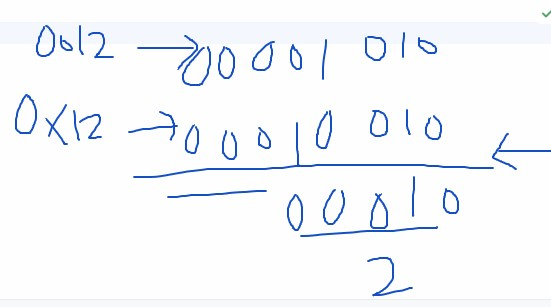 0012 → 00001 010
0x12 → 00010 010 ←
00010
2